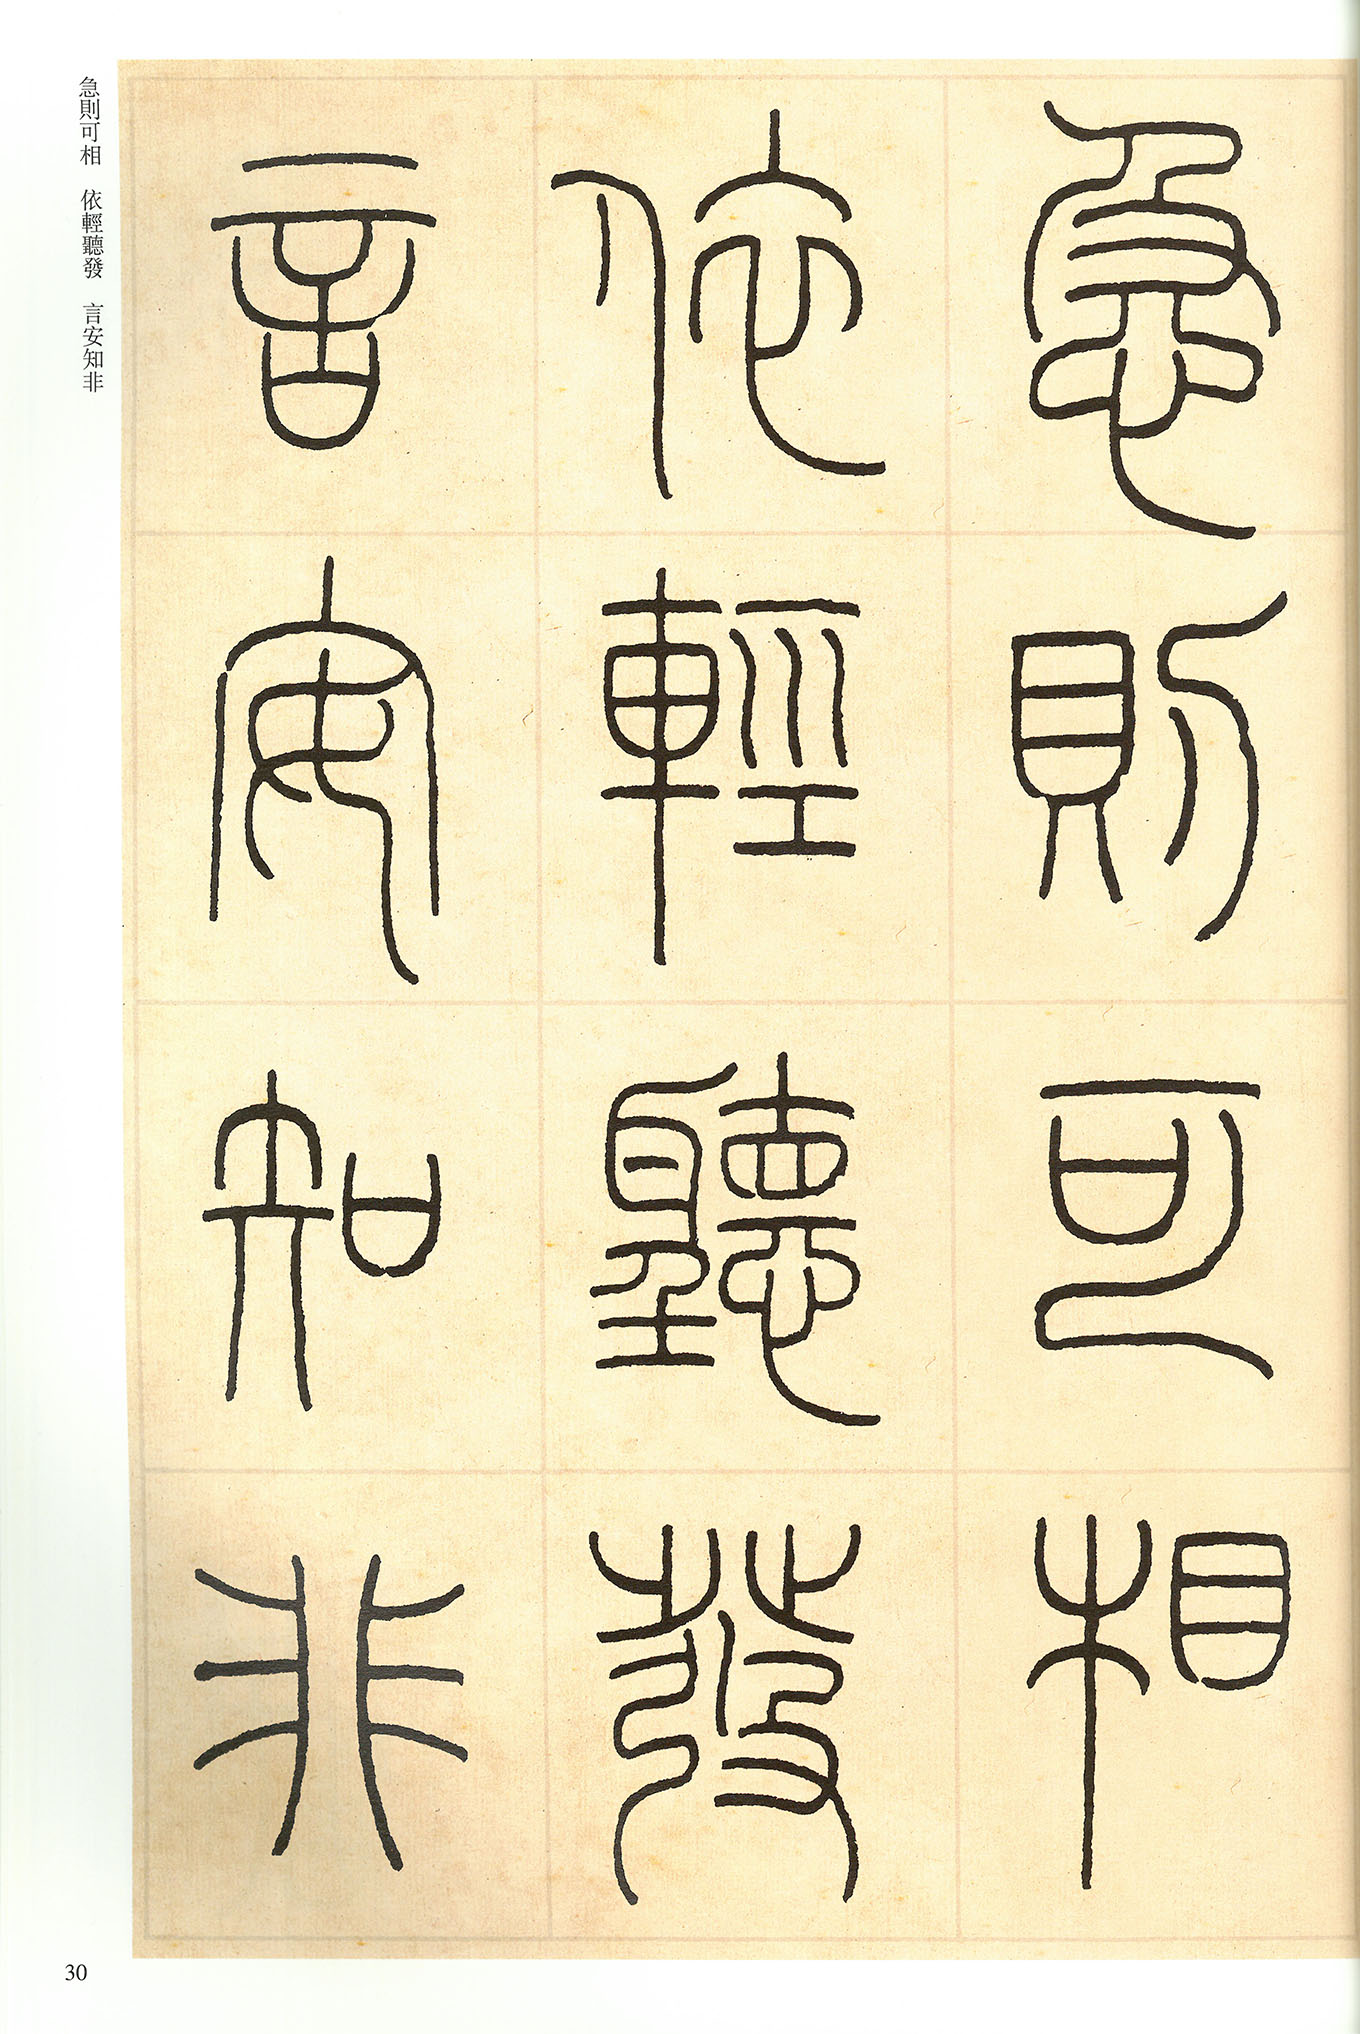 急則可相
依輕聽發
言安知非
急則可相　依輕聽發　言安知非
30